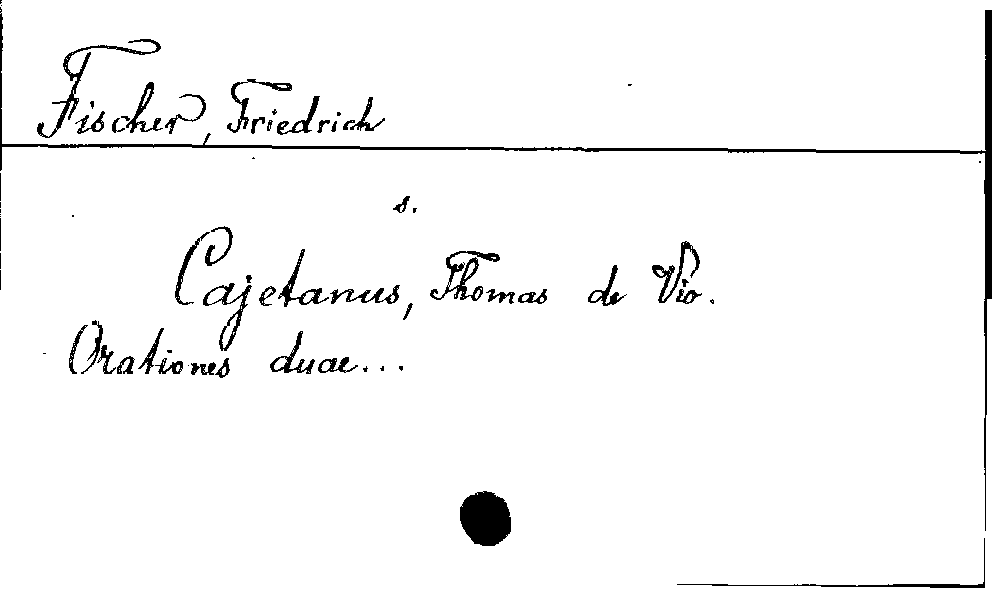 Fischer, Friedrich
s.
Cajetanus, Thomas de Vio.
Orationes duae...